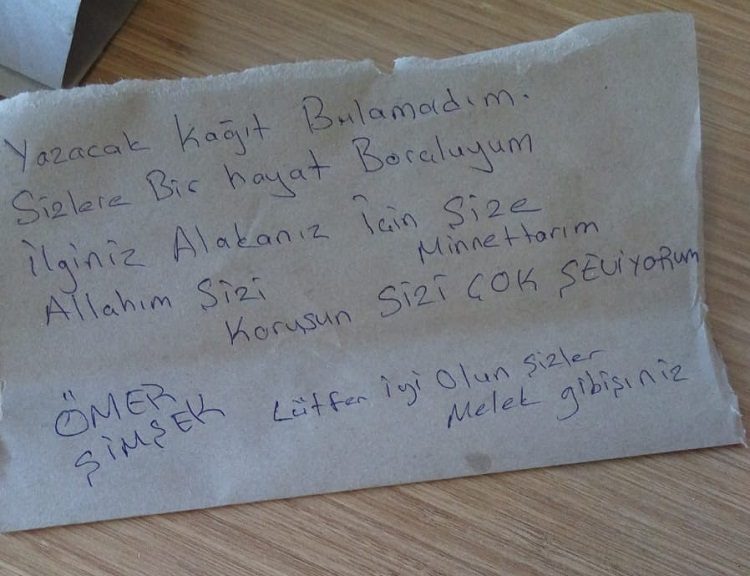 Yazacak Kağıt Bulamadım.
Sizlere Bir hayat Borcluyum
İlginiz Alakanız İçin Şize
Minnettarım
Allahım Şizi
Koruşun SİZİ ÇOK ŞEViYORUM
ÖMER
ŞİMŞEK
Lütfen iyi Olun Şizler
Melek gibişiniz